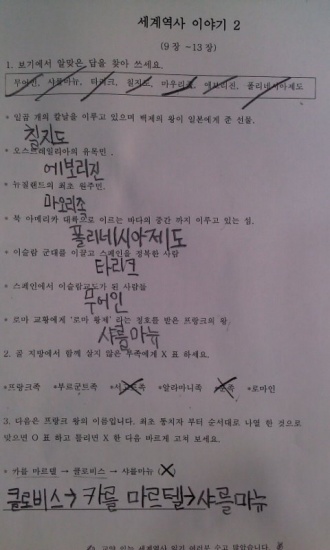 세계역사 이야기 2
(9장 -13장)
1. 보기에서 알맞은 답을 찾아 쓰세요.
무어인, 샤를마뉴, 타리크, 칠지도, 마우리족, 애보리진, 폴리네시아제도
* 일곱 개의 칼날을 이루고 있으며 백제의 왕이 일본에게 준 선물.
칠지도
* 오스트레일리아의 유목민.
에보리진
* 뉴질랜드의 최초 원주민.
마오리족
* 북 아메리카 대륙으로 이르는 바다의 중간 까지 이루고 있는 섬.
폴리네시아제도
* 이슬람 군대를 이끌고 스페인을 정복한 사람
타리크
* 스페인에서 이슬람교도가 된 사람들
무어인
* 로마 교황에게 '로마 황제' 라는 칭호를 받은 프랑크의 왕.
샤를마뉴
2. 골 지방에서 함께 살지 않은 부족에게 X 표 하세요.
*프랑크족 *부르군트족 *알라마니족 *로마인
3. 다음은 프랑크 왕의 이름입니다. 최초 통치자 부터 순서대로 나열 한 것으로
맞으면 O 표 하고 틀리면 X 한 다음 바르게 고쳐 보세요.
* 카를 마르텔 → 클로비스 → 샤를마뉴 (X)
클로비스→카를 마르텔→샤를마뉴